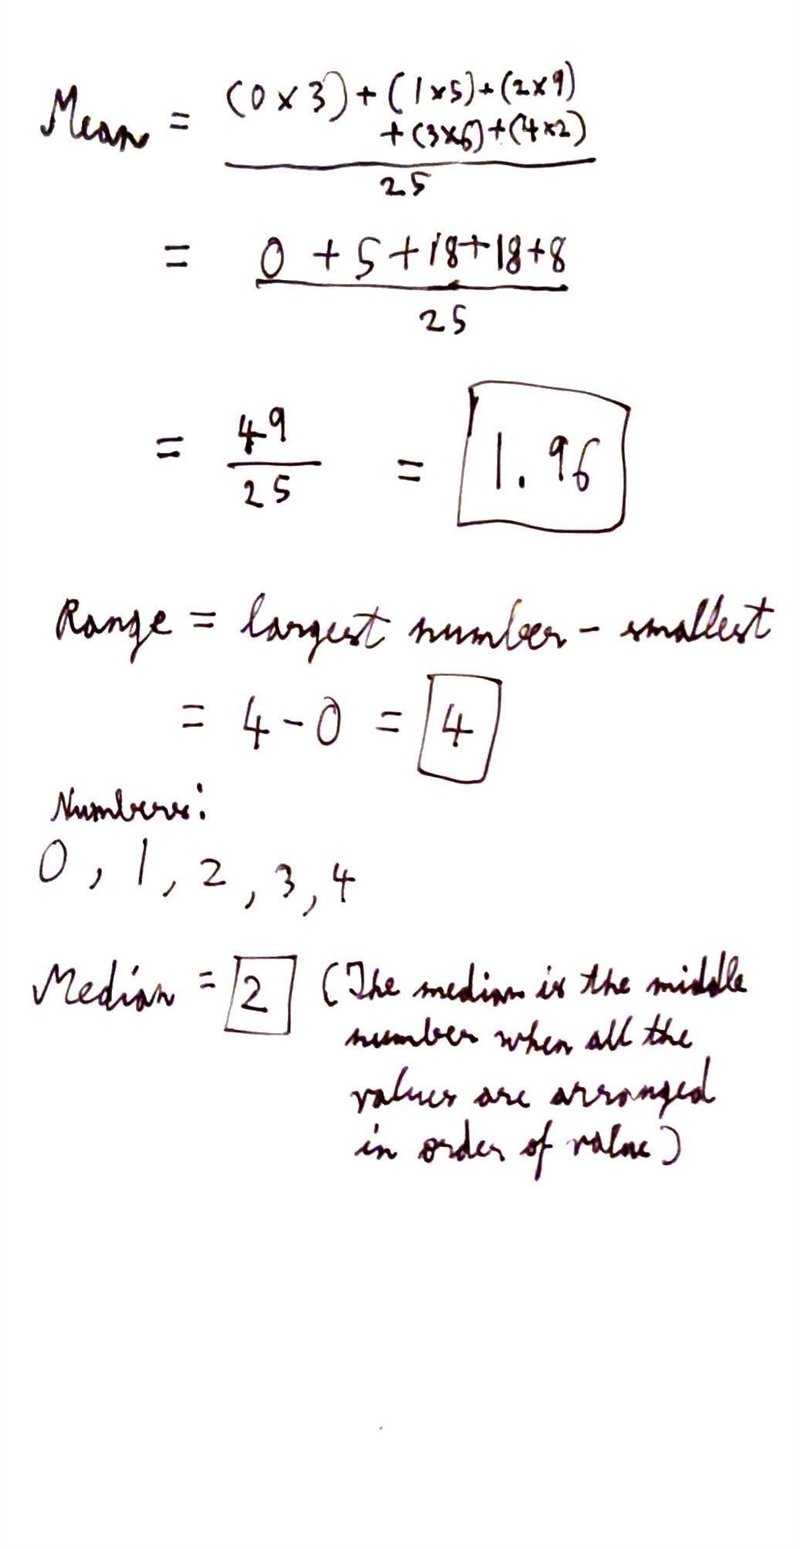 Mean = (0 × 3) + (1×5) + (2×9)
+ (3×6) + (4×2)
25
= 0 + 5 + 18 + 18 + 8
25
= 49
25
= 1.96
Range = largest number - smallest
= 4 - 0 = 4
Numbers:
0, 1, 2, 3, 4
Median = 2 (The median is the middle
number when all the
values are arranged
in order of value)